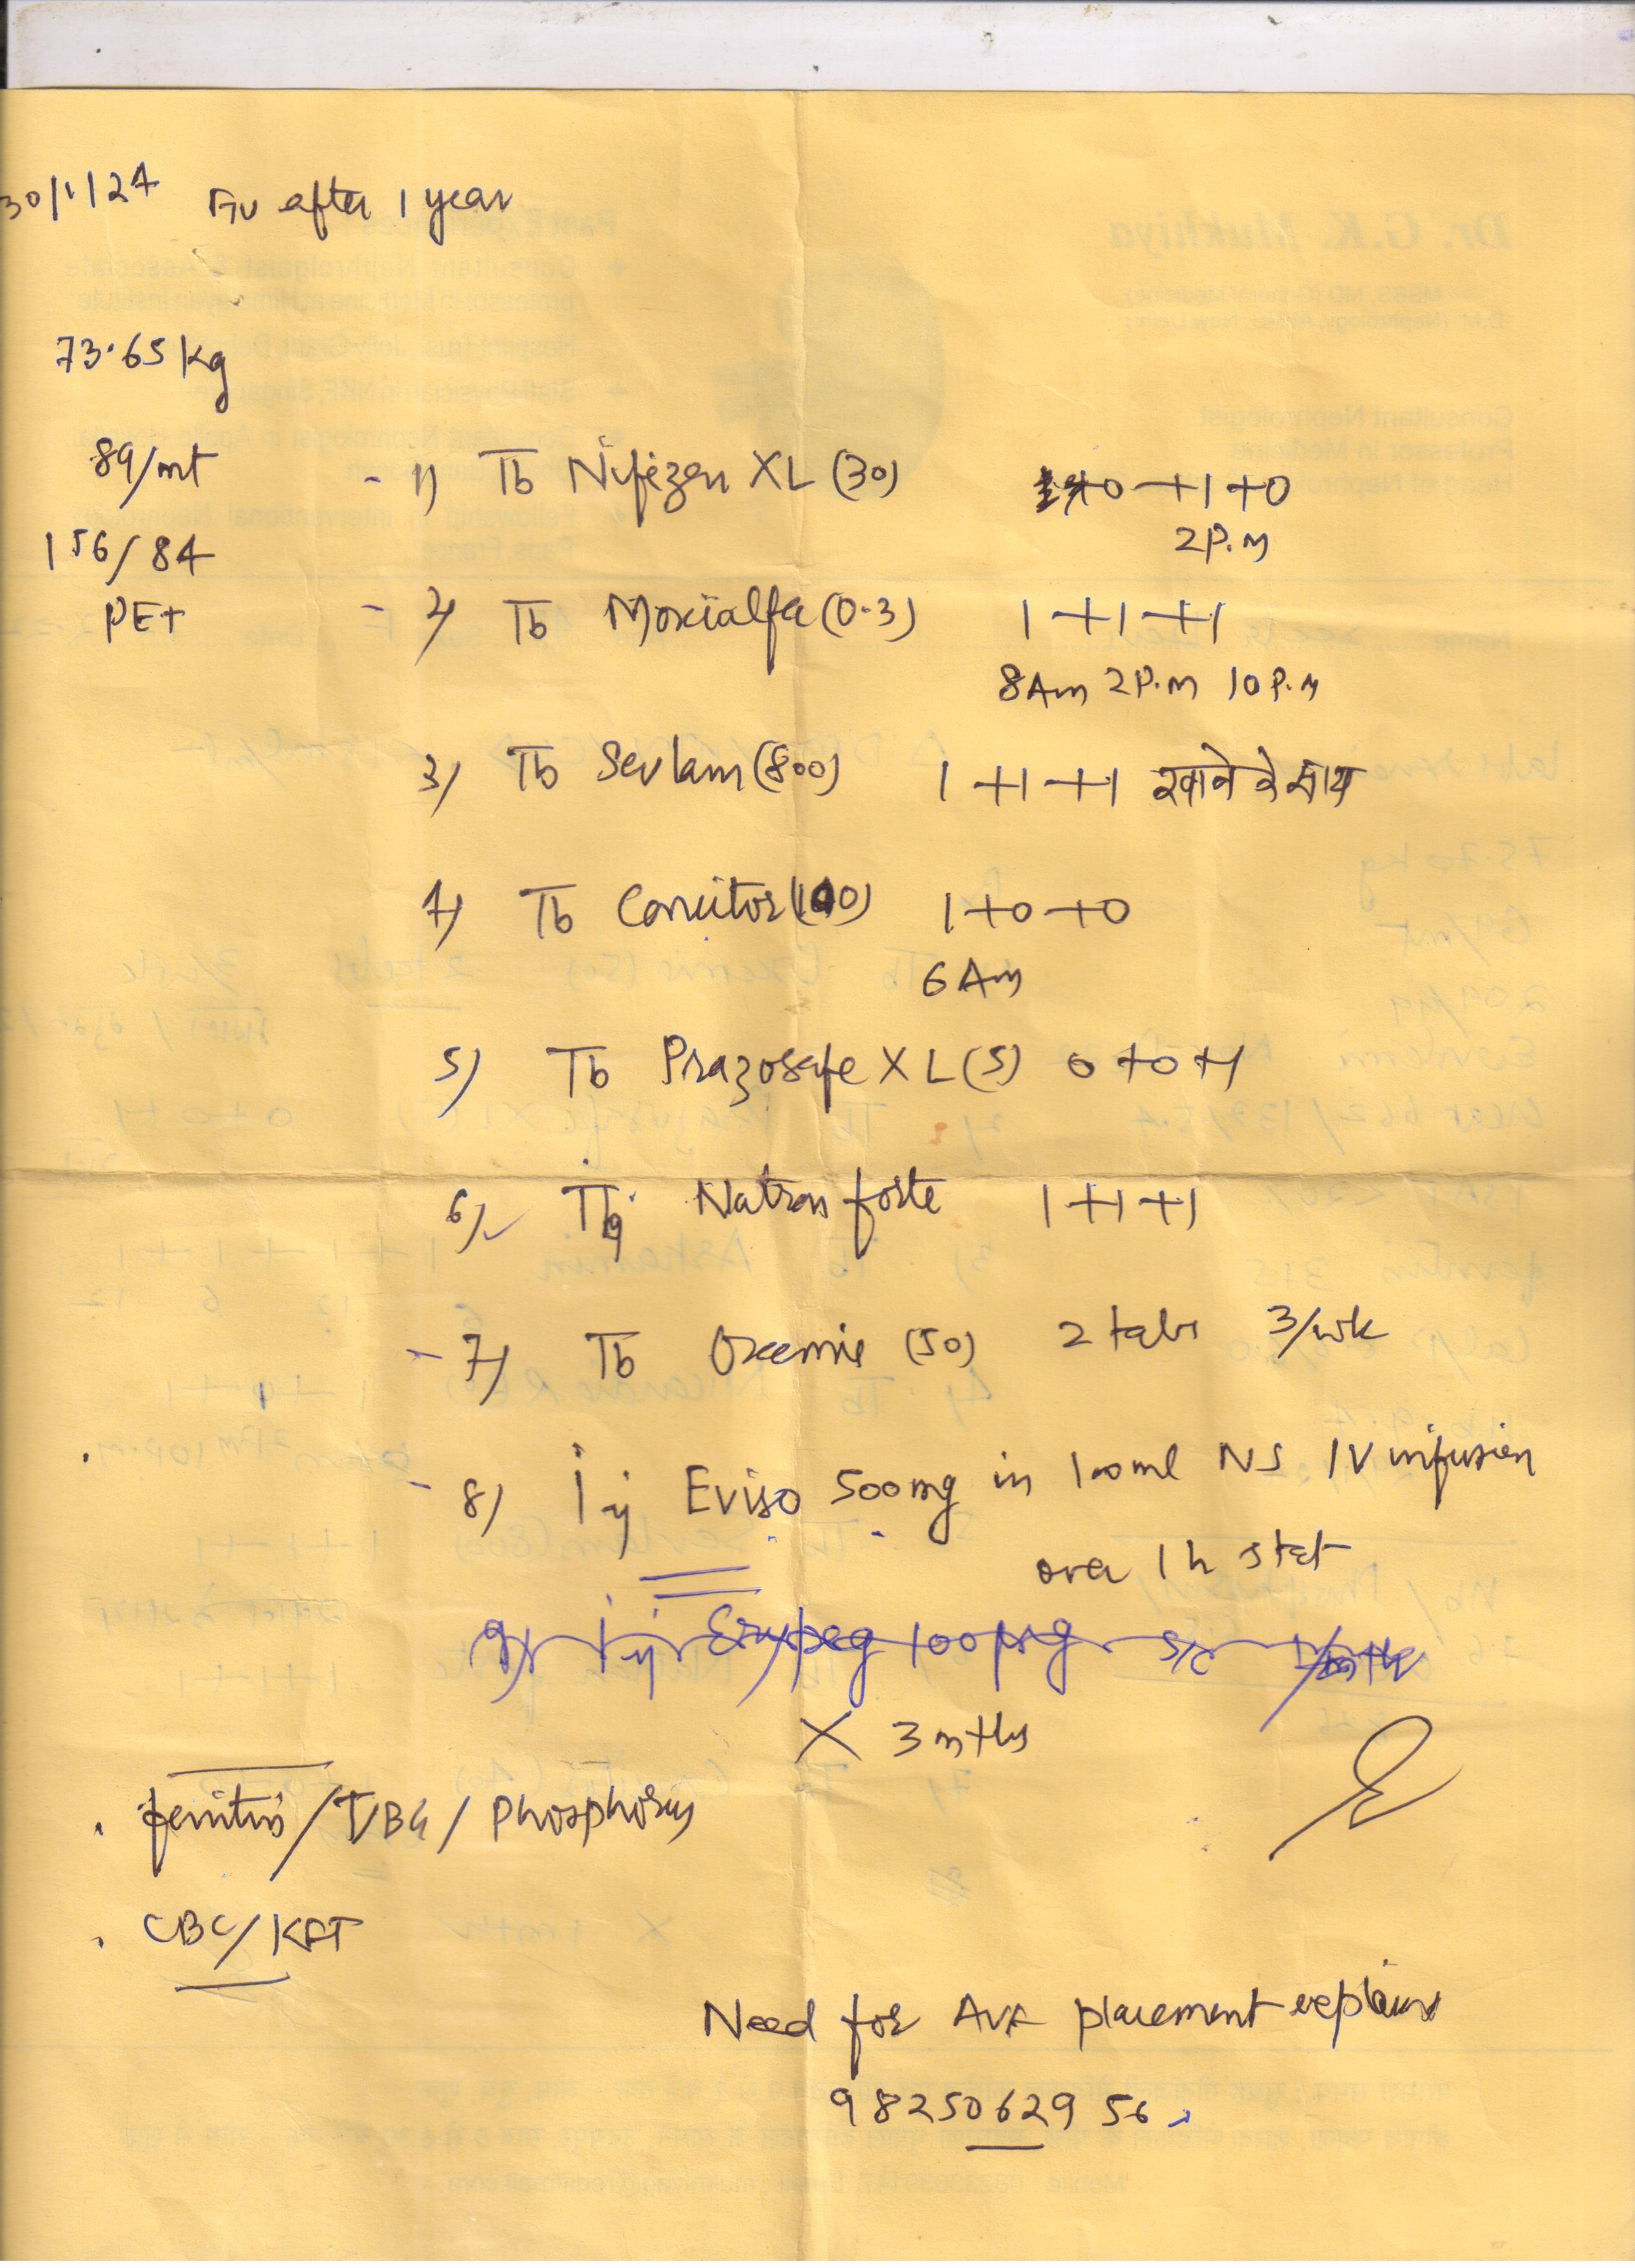 30/1/24 F/U after 1 year
73.65 kg
89/mt
156/84
PE+
1) Tb Nifezen XL (30) 0+1+0
2 P.M
2) Tb Moxialfa (0.3) 1+1+1
8Am 2P.M 10P.M
3) Tb Sevlam (800) 1+1+1 खाने के साथ
4) Tb (100) 1+0+0
6 Am
5) Tb Prazosafe XL (5) 0+0+1
6) Tb Natron forte 1+1+1
7) Tb Oxemia (50) 2 tabs 3/wk
8) Inj Eviso 500mg in 100ml NS IV infusion
over 1h stat
9) Inj Erypeg 100 µg s/c 1/mth
X 3 mths
ferritin / / Phosphorus
CBC/KFT
Need for AVF placement explained
98250629 56